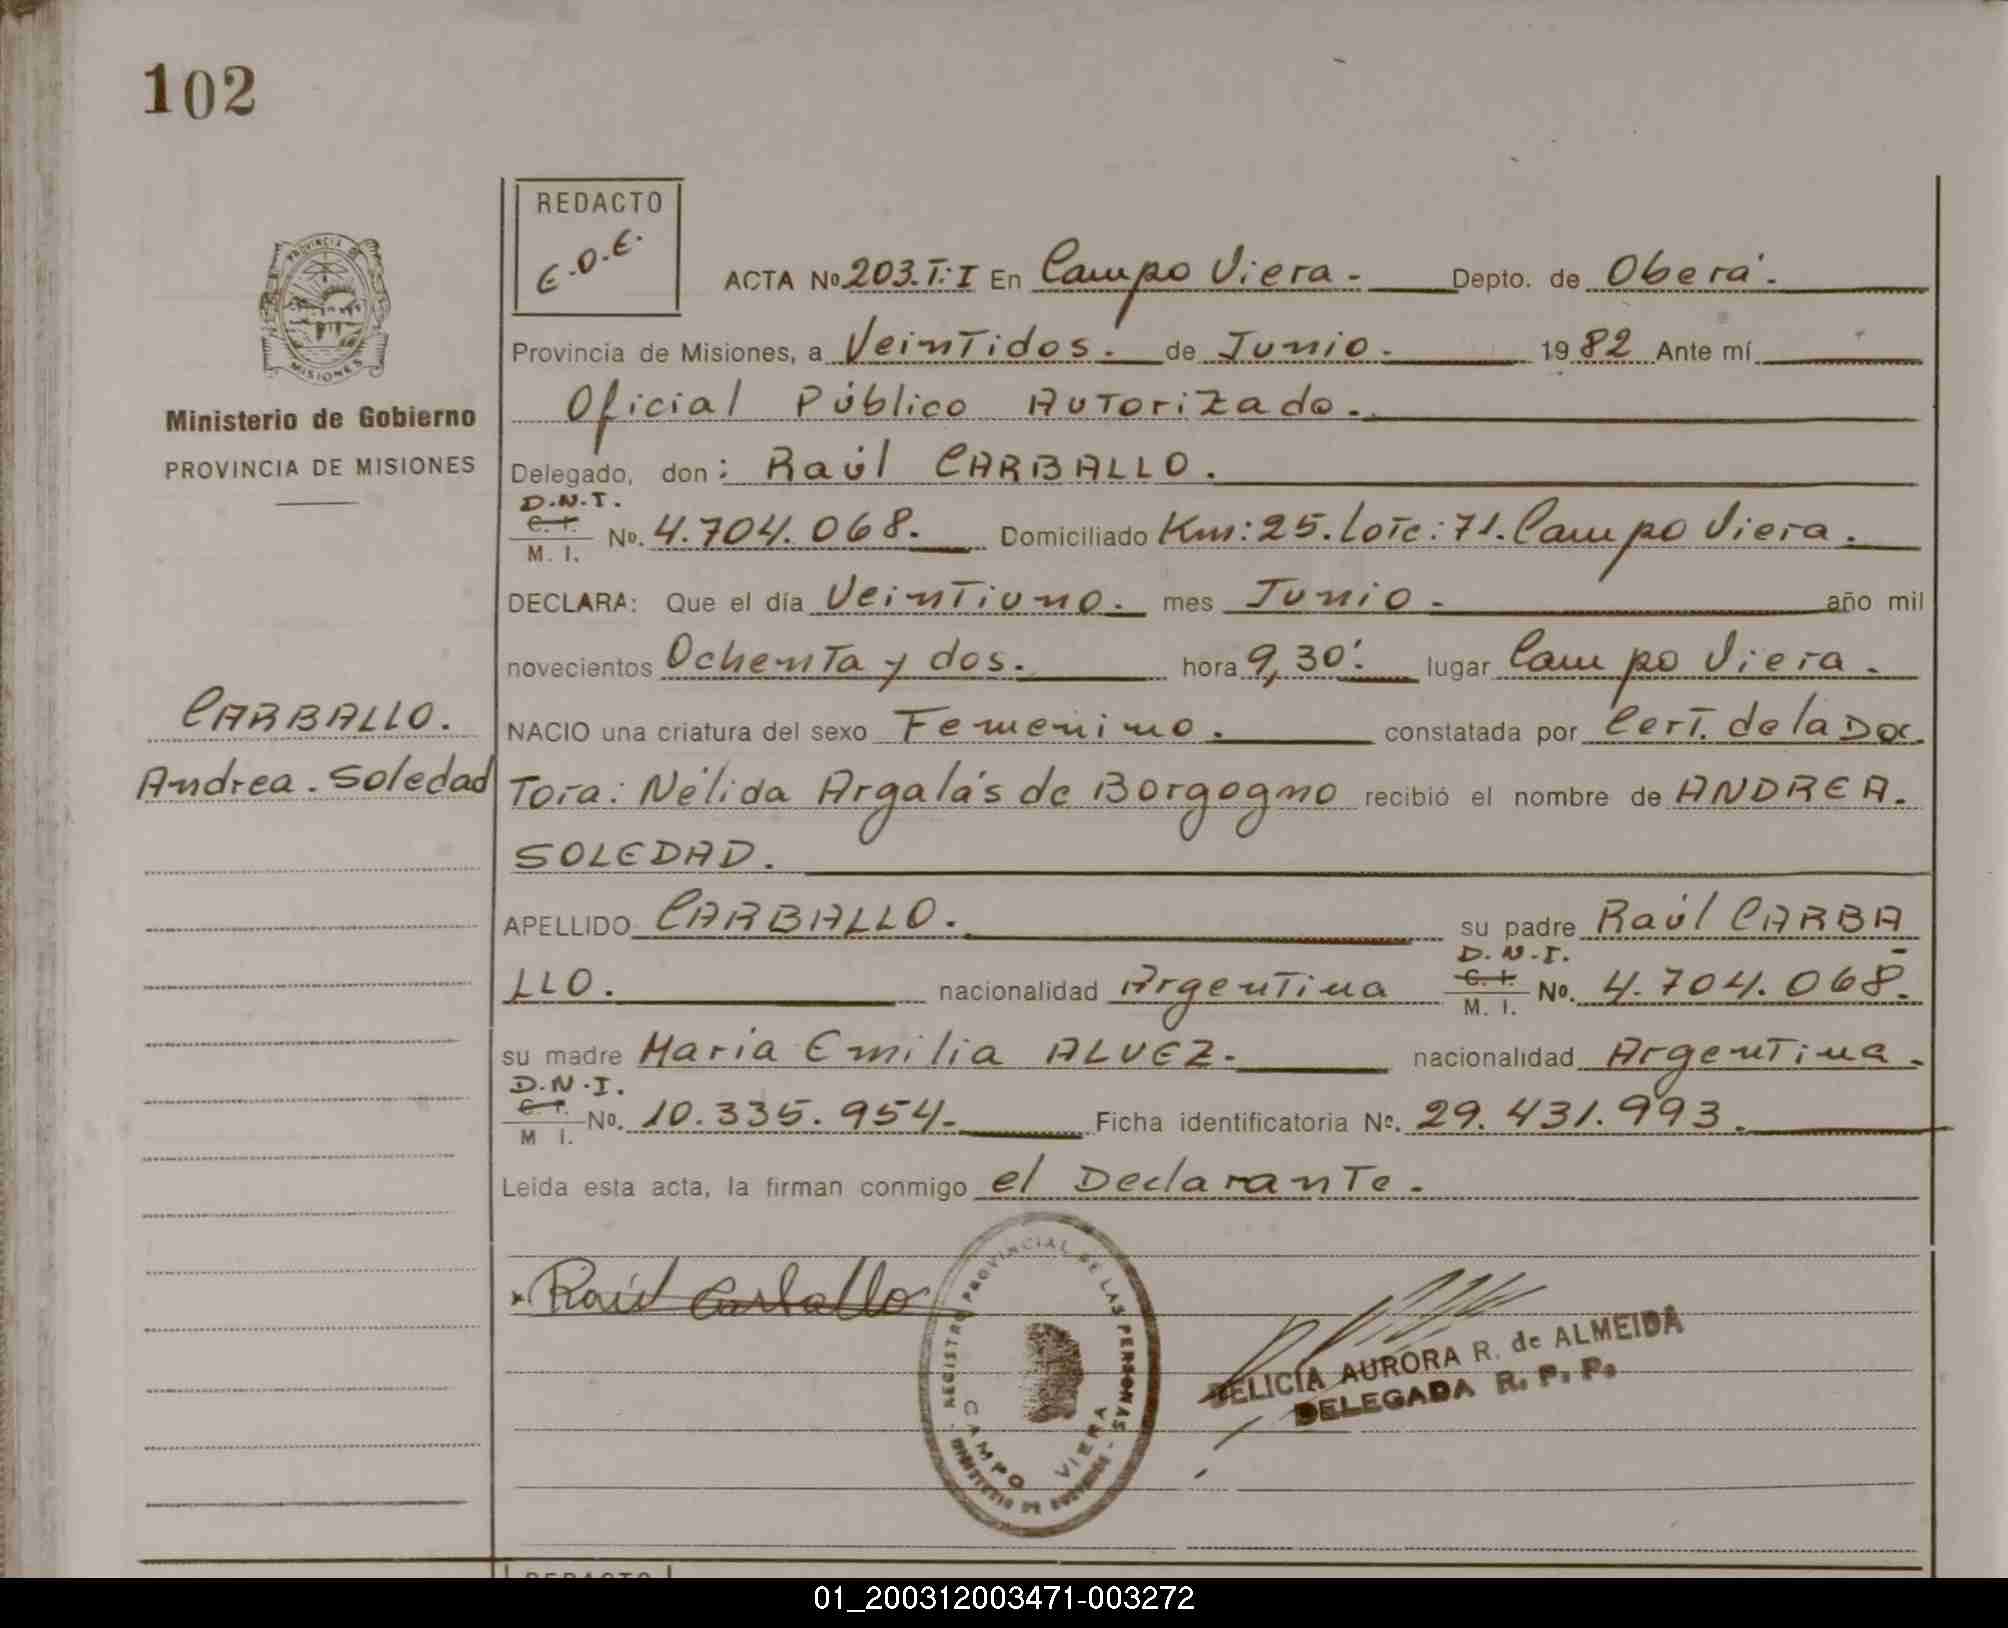 102
REDACTO
E.O.E.
PROVINCIA DE
MISIONES
Ministerio de Gobierno
PROVINCIA DE MISIONES
ACTA No 203.T:I En Campo Viera.- Depto. de Oberá.
Provincia de Misiones, a Veintidos. de Junio. 1982 Ante mí
Oficial Público Autorizado.
Delegado, don: Raúl CARBALLO.
D.N.I.
C. I.
M. I.
No. 4.704.068. Domiciliado Km: 25. Lote: 71. Campo Viera.
DECLARA: Que el día Veintiuno. mes Junio. año mil
novecientos Ochenta y dos. hora 9,30'. lugar Campo Viera.
NACIO una criatura del sexo Femenino. constatada por Cert. de la Doc
Tora: Nélida Argalás de Borgogno recibió el nombre de ANDREA.
SOLEDAD.
CARBALLO.
Andrea. Soledad
APELLIDO CARBALLO. su padre Raúl CARBA
LLO. nacionalidad Argentina D.N.I. C. I. M. I. No. 4.704.068.
su madre Maria Emilia ALVEZ. nacionalidad Argentina.
D.N.I.
C. I.
M I.
No. 10.335.954. Ficha identificatoria No. 29.431.993.
Leida esta acta, la firman conmigo el Declarante.
Raúl Carballo
REGISTRO PROVINCIAL DE LAS PERSONAS
CAMPO VIERA
MINISTERIO DE GOBIERNO
DELICIA AURORA R. de ALMEIDA
DELEGADA R. P. P.
REDACTO
01_200312003471-003272